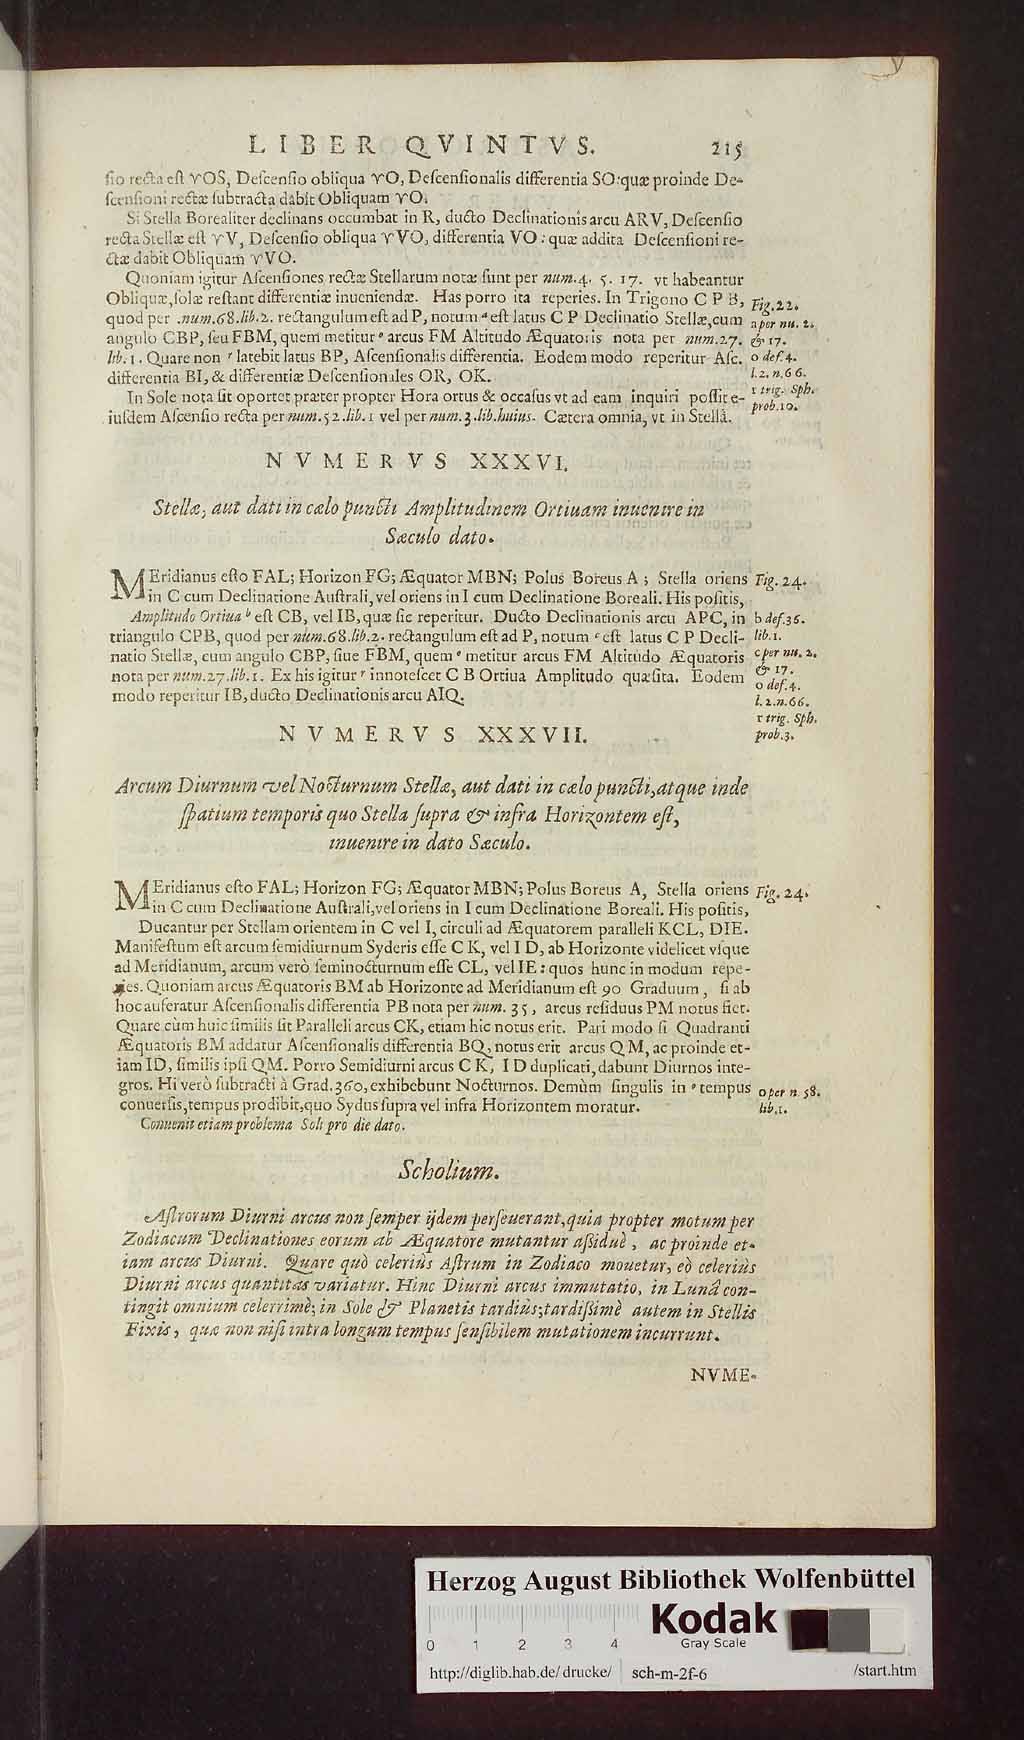 LIBER QVINTVS. 215
sio recta est ♈OS, Descensio obliqua ♈O, Descensionalis differentia SO: quæ proinde De-
scensioni rectæ subtracta dabit Obliquam ♈O.
Si Stella Borealiter declinans occumbat in R, ducto Declinationis arcu ARV, Descensio
recta Stellæ est ♈V, Descensio obliqua ♈VO, differentia VO: quæ addita Descensioni re-
ctæ dabit Obliquam ♈VO.
Quoniam igitur Ascensiones rectæ Stellarum notæ sunt per num.4. 5. 17. vt habeantur
Obliquæ, solæ restant differentiæ inueniendæ. Has porro ita reperies. In Trigono C P B,
Fig. 22.
quod per num.68.lib.2. rectangulum est ad P, notum ᵃ est latus C P Declinatio Stellæ, cum
a per nu. 2.
angulo CBP, seu FBM, quem metitur ᵒ arcus FM Altitudo Æquatoris nota per num.27.
& 17.
lib.1. Quare non ʳ latebit latus BP, Ascensionalis differentia. Eodem modo reperitur Asc.
o def.4.
differentia BI, & differentiæ Descensionales OR, OK.
l.2. n.66.
In Sole nota sit oportet præter propter Hora ortus & occasus vt ad eam inquiri possit e-
r trig. Sph.
iusdem Ascensio recta per num.52.lib.1 vel per num.3.lib.huius. Cætera omnia, vt in Stellâ.
prob.10.
NVMERVS XXXVI.
Stellæ, aut dati in cælo puncti Amplitudinem Ortiuam inuenire in
Sæculo dato.
MEridianus esto FAL; Horizon FG; Æquator MBN; Polus Boreus A; Stella oriens
Fig. 24.
in C cum Declinatione Australi, vel oriens in I cum Declinatione Boreali. His positis,
Amplitudo Ortiua ᵇ est CB, vel IB, quæ sic reperitur. Ducto Declinationis arcu APC, in
b def.36.
triangulo CPB, quod per num.68.lib.2. rectangulum est ad P, notum ᶜ est latus C P Decli-
lib.1.
natio Stellæ, cum angulo CBP, siue FBM, quem ᵒ metitur arcus FM Altitudo Æquatoris
c per nu. 2.
& 17.
nota per num.27.lib.1. Ex his igitur ʳ innotescet C B Ortiua Amplitudo quæsita. Eodem
o def.4.
modo reperitur IB, ducto Declinationis arcu AIQ.
l.2.n.66.
r trig. Sph.
NVMERVS XXXVII.
prob.3.
Arcum Diurnum vel Nocturnum Stellæ, aut dati in cælo puncti, atque inde
spatium temporis quo Stella supra & infra Horizontem est,
inuenire in dato Sæculo.
MEridianus esto FAL; Horizon FG; Æquator MBN; Polus Boreus A, Stella oriens
Fig. 24.
in C cum Declinatione Australi, vel oriens in I cum Declinatione Boreali. His positis,
Ducantur per Stellam orientem in C vel I, circuli ad Æquatorem paralleli KCL, DIE.
Manifestum est arcum semidiurnum Syderis esse C K, vel I D, ab Horizonte videlicet vsque
ad Meridianum, arcum verò seminocturnum esse CL, vel IE: quos hunc in modum repe-
ries. Quoniam arcus Æquatoris BM ab Horizonte ad Meridianum est 90 Graduum, si ab
hoc auferatur Ascensionalis differentia PB nota per num. 35, arcus residuus PM notus fiet.
Quare cùm huic similis sit Paralleli arcus CK, etiam hic notus erit. Pari modo si Quadranti
Æquatoris BM addatur Ascensionalis differentia BQ, notus erit arcus QM, ac proinde et-
iam ID, similis ipsi QM. Porro Semidiurni arcus C K, I D duplicati, dabunt Diurnos inte-
gros. Hi verò subtracti à Grad. 360, exhibebunt Nocturnos. Demùm singulis in ᵒ tempus
o per n. 58.
conuersis, tempus prodibit, quo Sydus supra vel infra Horizontem moratur.
lib.1.
Conuenit etiam problema Soli pro die dato.
Scholium.
Astrorum Diurni arcus non semper ijdem perseuerant, quia propter motum per
Zodiacum Declinationes eorum ab Æquatore mutantur assiduè, ac proinde et-
iam arcus Diurni. Quare quò celeriùs Astrum in Zodiaco mouetur, eò celeriùs
Diurni arcus quantitas variatur. Hinc Diurni arcus immutatio, in Lunâ con-
tingit omnium celerrimè; in Sole & Planetis tardiùs; tardissimè autem in Stellis
Fixis, quæ non nisi intra longum tempus sensibilem mutationem incurrunt.
NVME-
Herzog August Bibliothek Wolfenbüttel
Kodak
Gray Scale
0 1 2 3 4
http://diglib.hab.de/drucke/ sch-m-2f-6 /start.htm